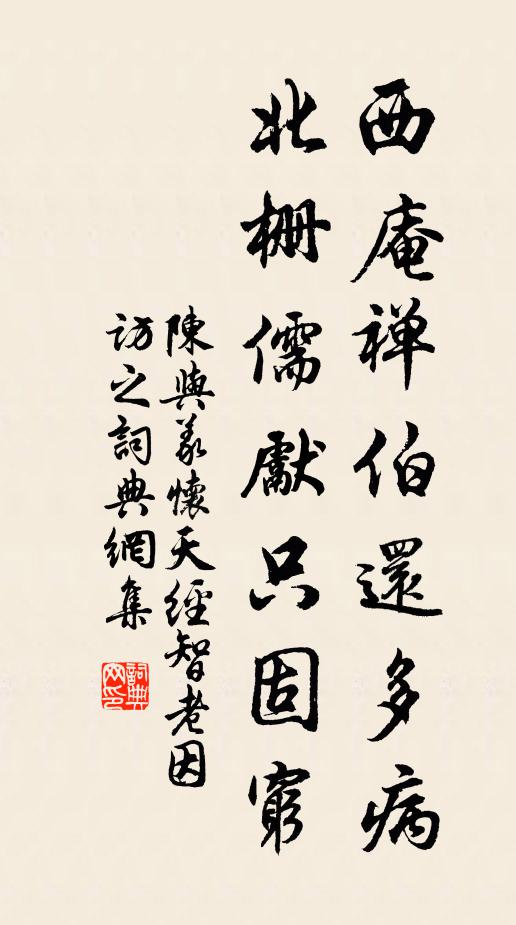 西庵禅伯還多病
北柵儒獻只固窮
陳與義懷天經智老因
訪之詞典網集
詞典網印